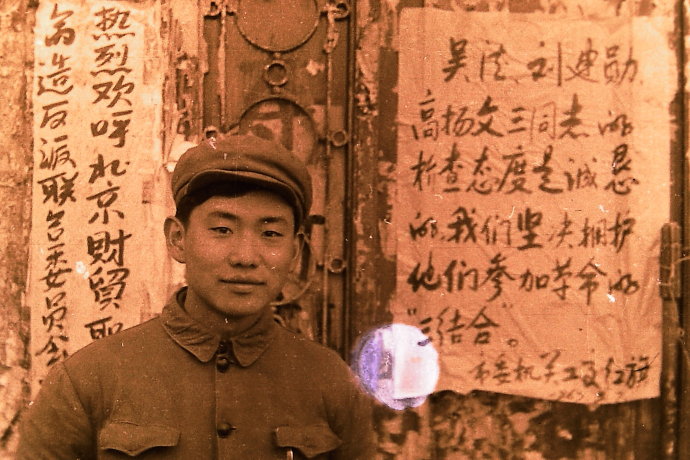 热烈欢呼北京財貿职
造反派联合委員会
吴德、刘建勋、
高扬文三同志的
检查态度是诚恳
的,我们坚决拥护
他们参加革命的
"三结合"。
市委机关工交红旗